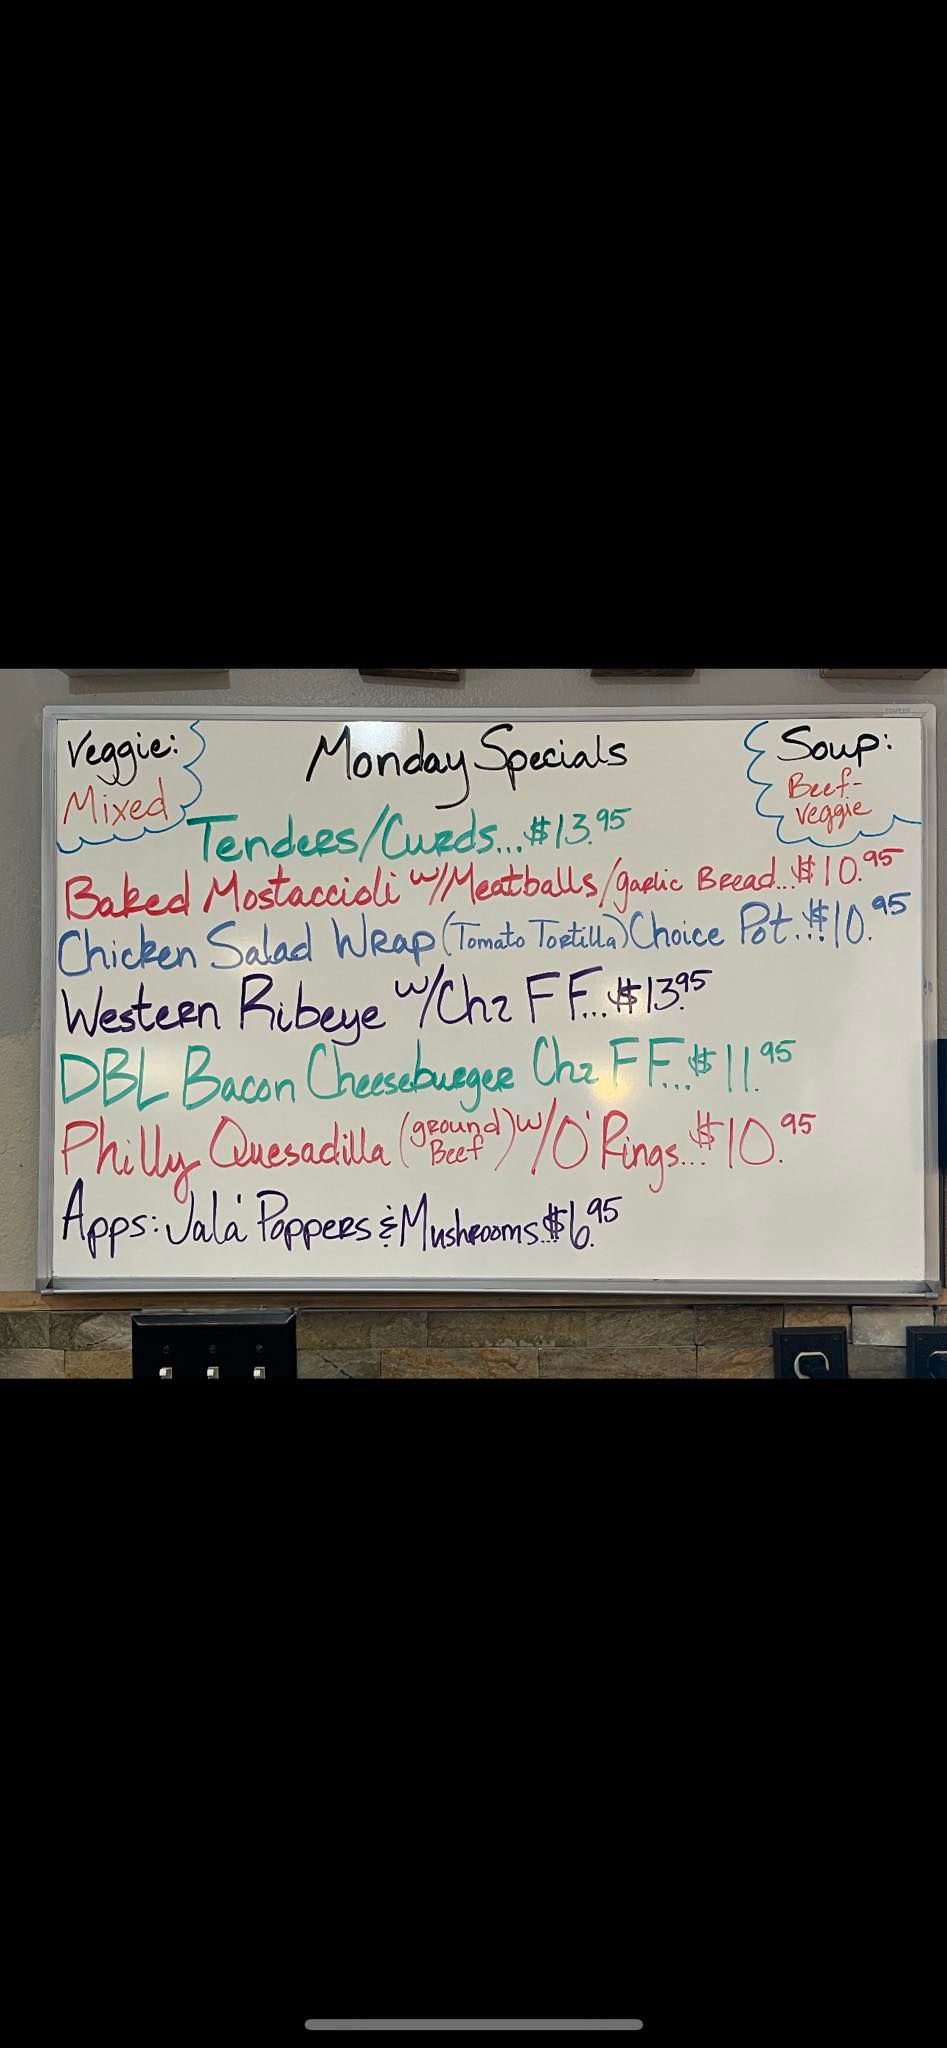 Veggie:
Mixed
Monday Specials
Soup:
Beef-
Veggie
Tenders/Curds...$13.95
Baked Mostaccioli w/Meatballs/garlic Bread...$10.95
Chicken Salad Wrap (Tomato Tortilla) Choice Pot...$10.95
Western Ribeye w/Chz FF...$13.95
DBL Bacon Cheeseburger Chz FF...$11.95
Philly Quesadilla (ground Beef) w/O'Rings...$10.95
Apps: Jala' Poppers & Mushrooms...$6.95